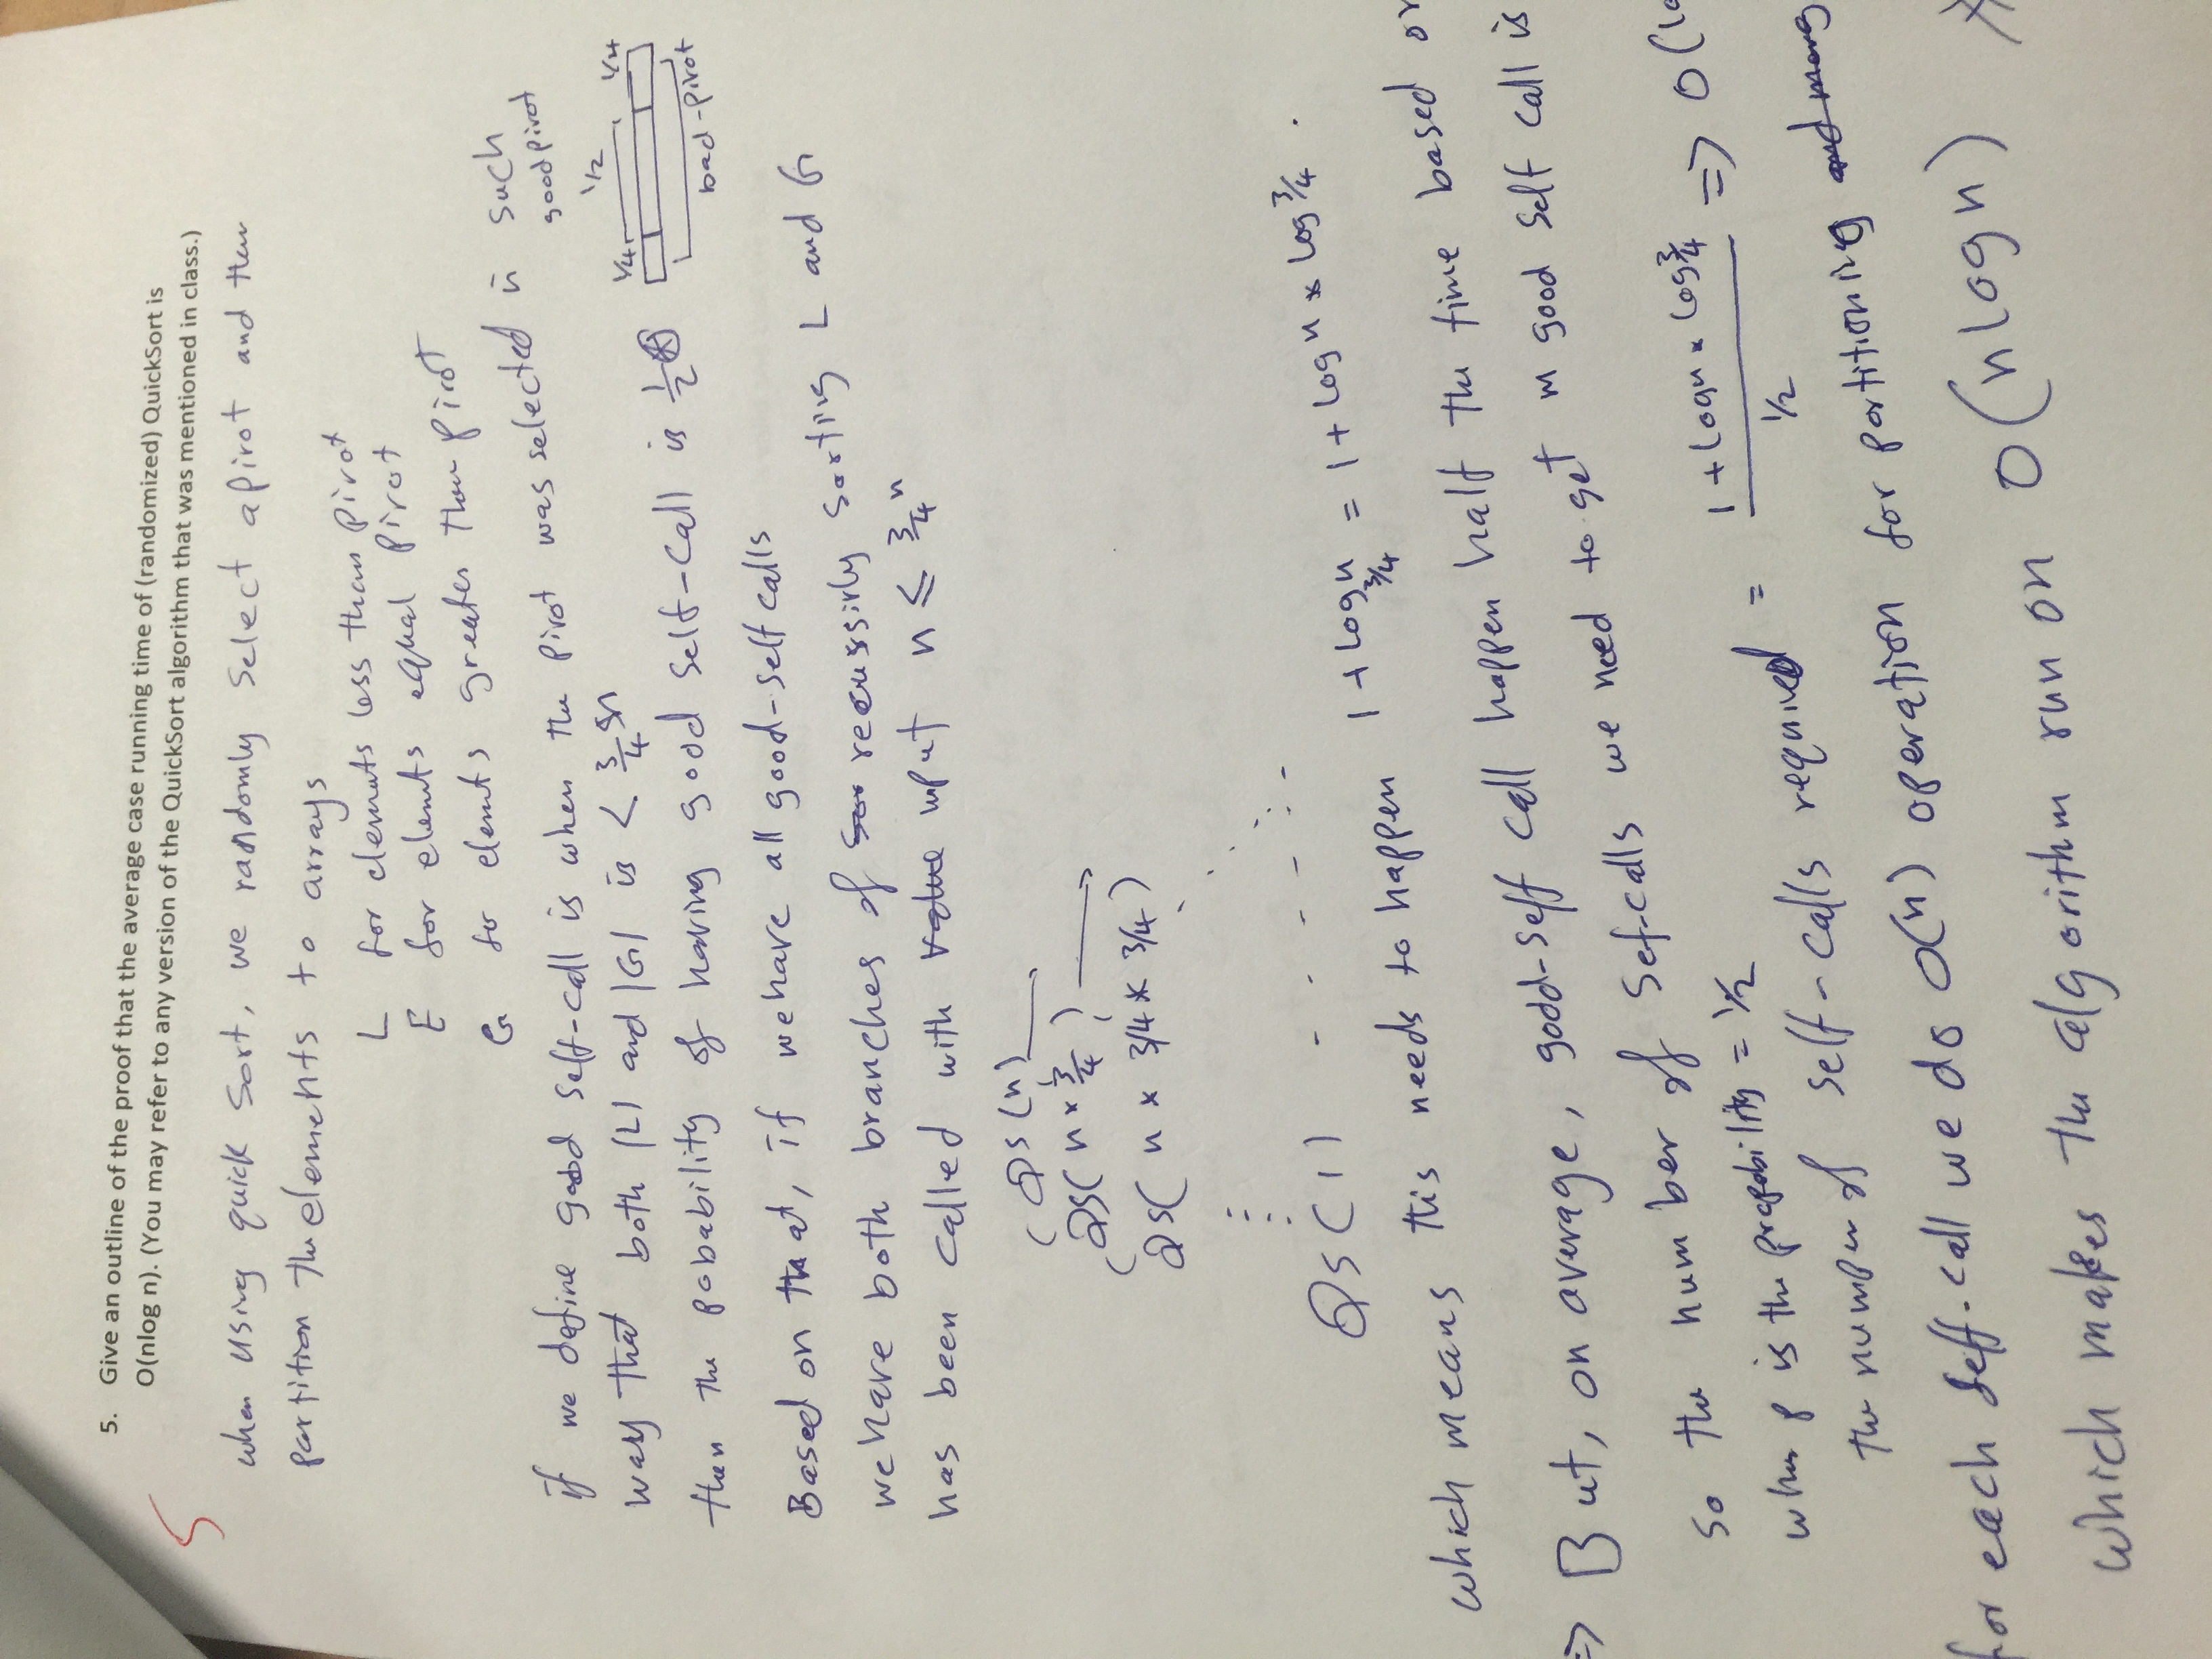 5. Give an outline of the proof that the average case running time of (randomized) QuickSort is
O(nlog n). (You may refer to any version of the QuickSort algorithm that was mentioned in class.)
5
when using quick sort, we randomly select a pivot and then
partition the elements to arrays
L for elements less than pivot
E for elements equal pivot
G for elements greater than pivot
if we define good self-call is when the pivot was selected in such
way that both |L| and |G| is < 3/4 n
then the pobability of having good self-call is 1/2 ⊛
good pivot
1/2
1/4 1/4
bad-pivot
Based on that, if we have all good-self calls
we have both branches of recussivly sorting L and G
has been called with input n ≤ 3/4 n
QS(n)
QS(n × 3/4)
QS(n × 3/4 * 3/4)
QS(1)
which means this needs to happen 1 + log_{3/4} n = 1 + log n * log 3/4 .
=> But, on average, godd-self call happen half the time based on
so the number of Sef-calls we need to get m good self call is
when p is the propability = 1/2
the number of self-calls required = (1 + log n * log 3/4) / (1/2) => O(lo
for each self-call we do O(n) operation for partitioning and merg
which makes the algorithm run on O(nlogn)